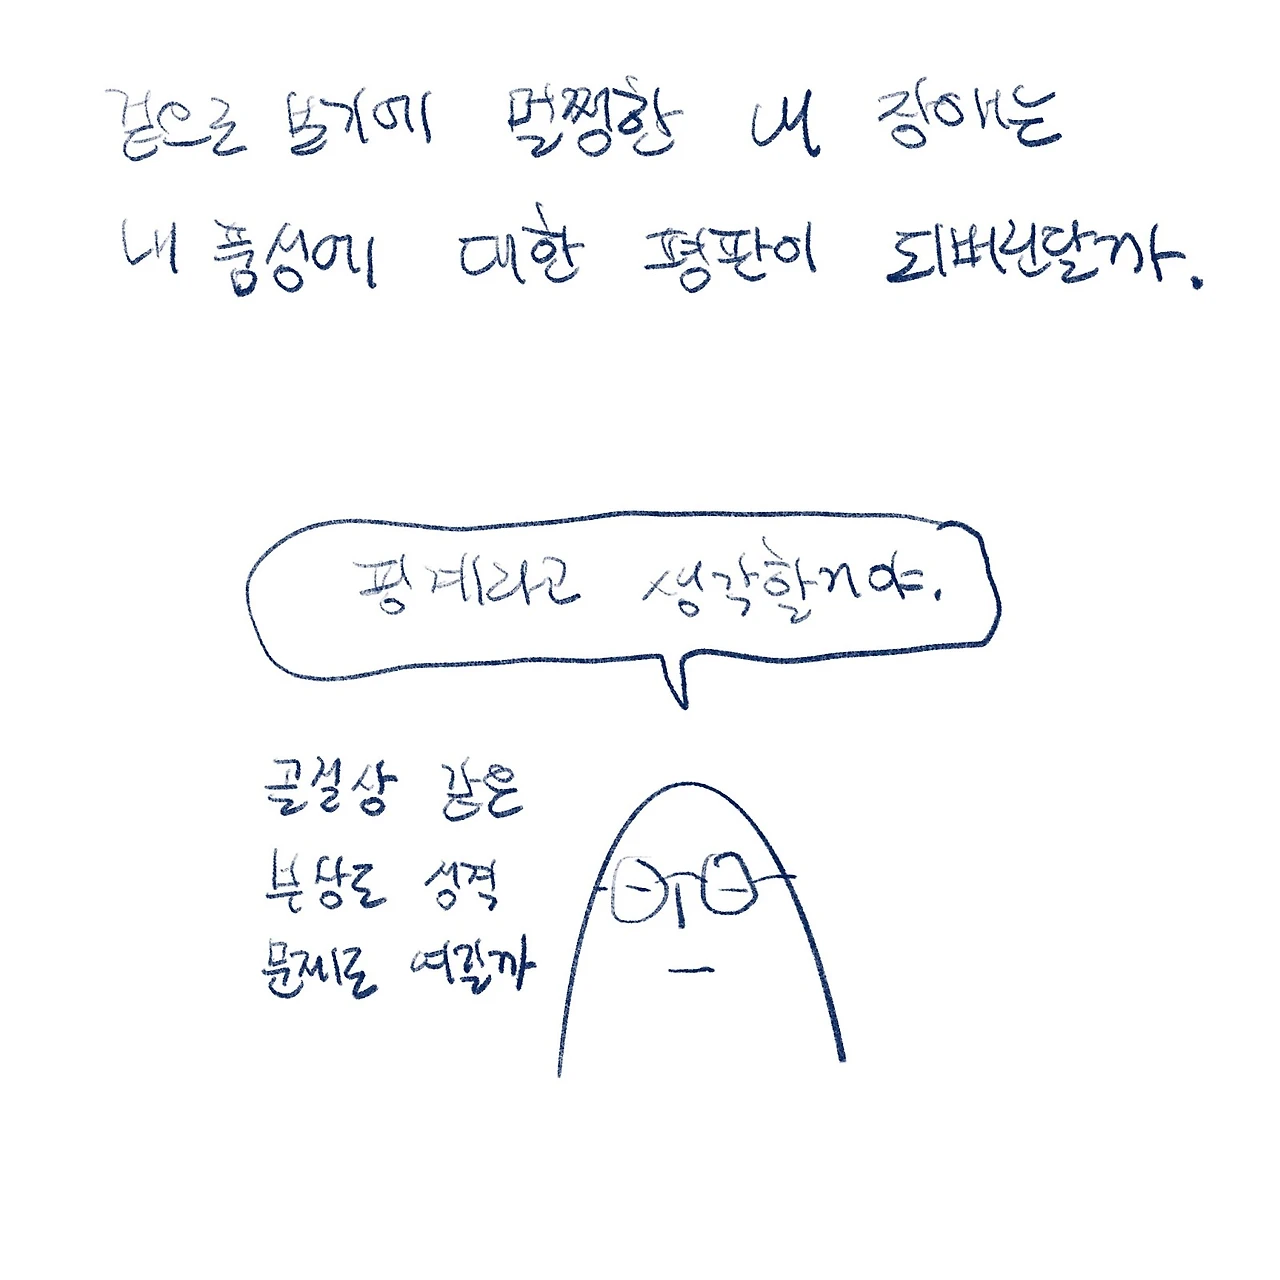 겉으로 보기에 멀쩡한 내 장애는
내 품성에 대한 평판이 되버린달까.
핑계라고 생각할거야.
골절상 같은
부상도 성격
문제로 여길까